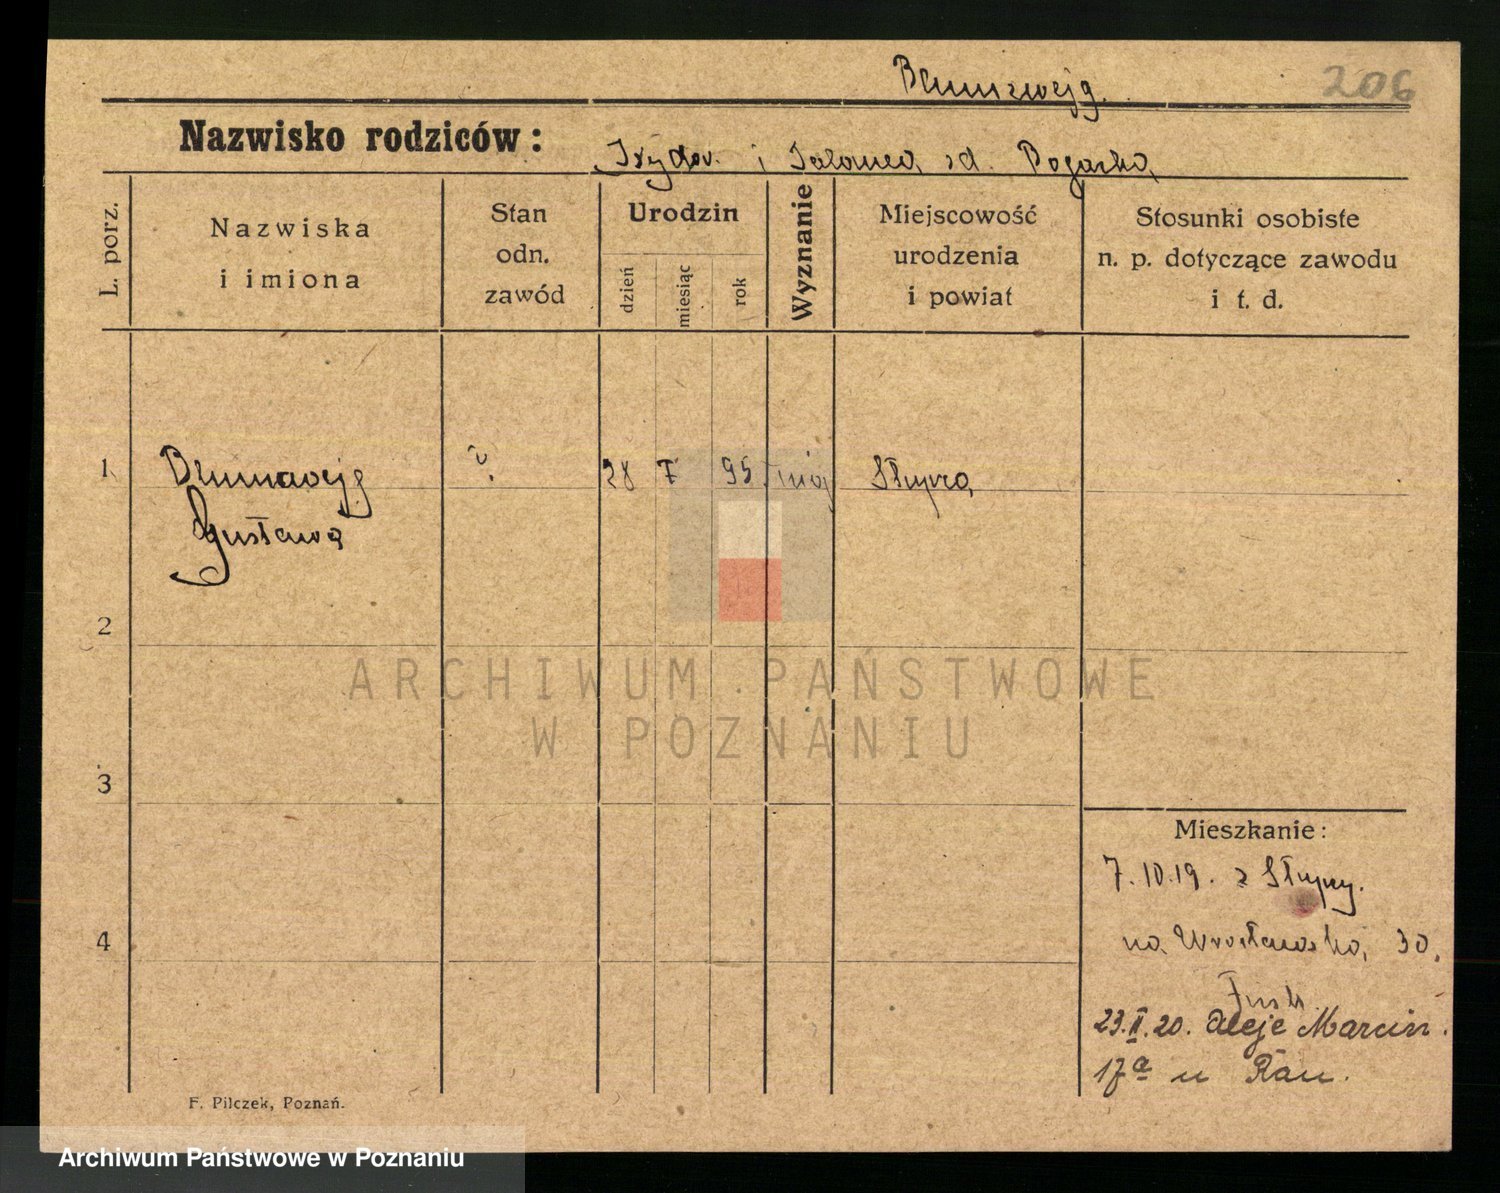 Blumzwejg.
206
Nazwisko rodziców: Izydor i Salomea, zd. Rogacka
L. porz.
Nazwiska i imiona
Stan odn. zawód
Urodzin
dzień
miesiąc
rok
Wyznanie
Miejscowość urodzenia i powiat
Stosunki osobiste n. p. dotyczące zawodu i t. d.
1 Blumzwejg 28 7 95 Słupca
Gustawa
2
3
4
Mieszkanie:
7.10.19. z Słupcy.
na Wrocławską, 30.
23.II.20. Aleje Marcin.
17a u Rau.
F. Pilczek, Poznań.
ARCHIWUM PAŃSTWOWE
W POZNANIU
Archiwum Państwowe w Poznaniu